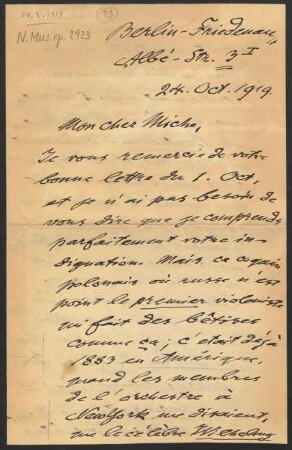 24.X.1919
N. Mus. ep. 2923
(23)
Berlin-Friedenau,
Albé-Str. 3 I
24. Oct. 1919.
Mon cher Miche,
Je vous remercie de votre
bonne lettre du 1. Oct,
et je n'ai pas besoin de
vous dire que je comprends
parfaitement votre in-
dignation. Mais ce coquin
polonais où russe n'est
point le premier violoniste
qui fait des bêtises
comme ça; c'etait déjà
1883 en Amérique,
quand les membres
de l'orchestre à
NewYork me disaient,
que le célèbre Wilhelmj